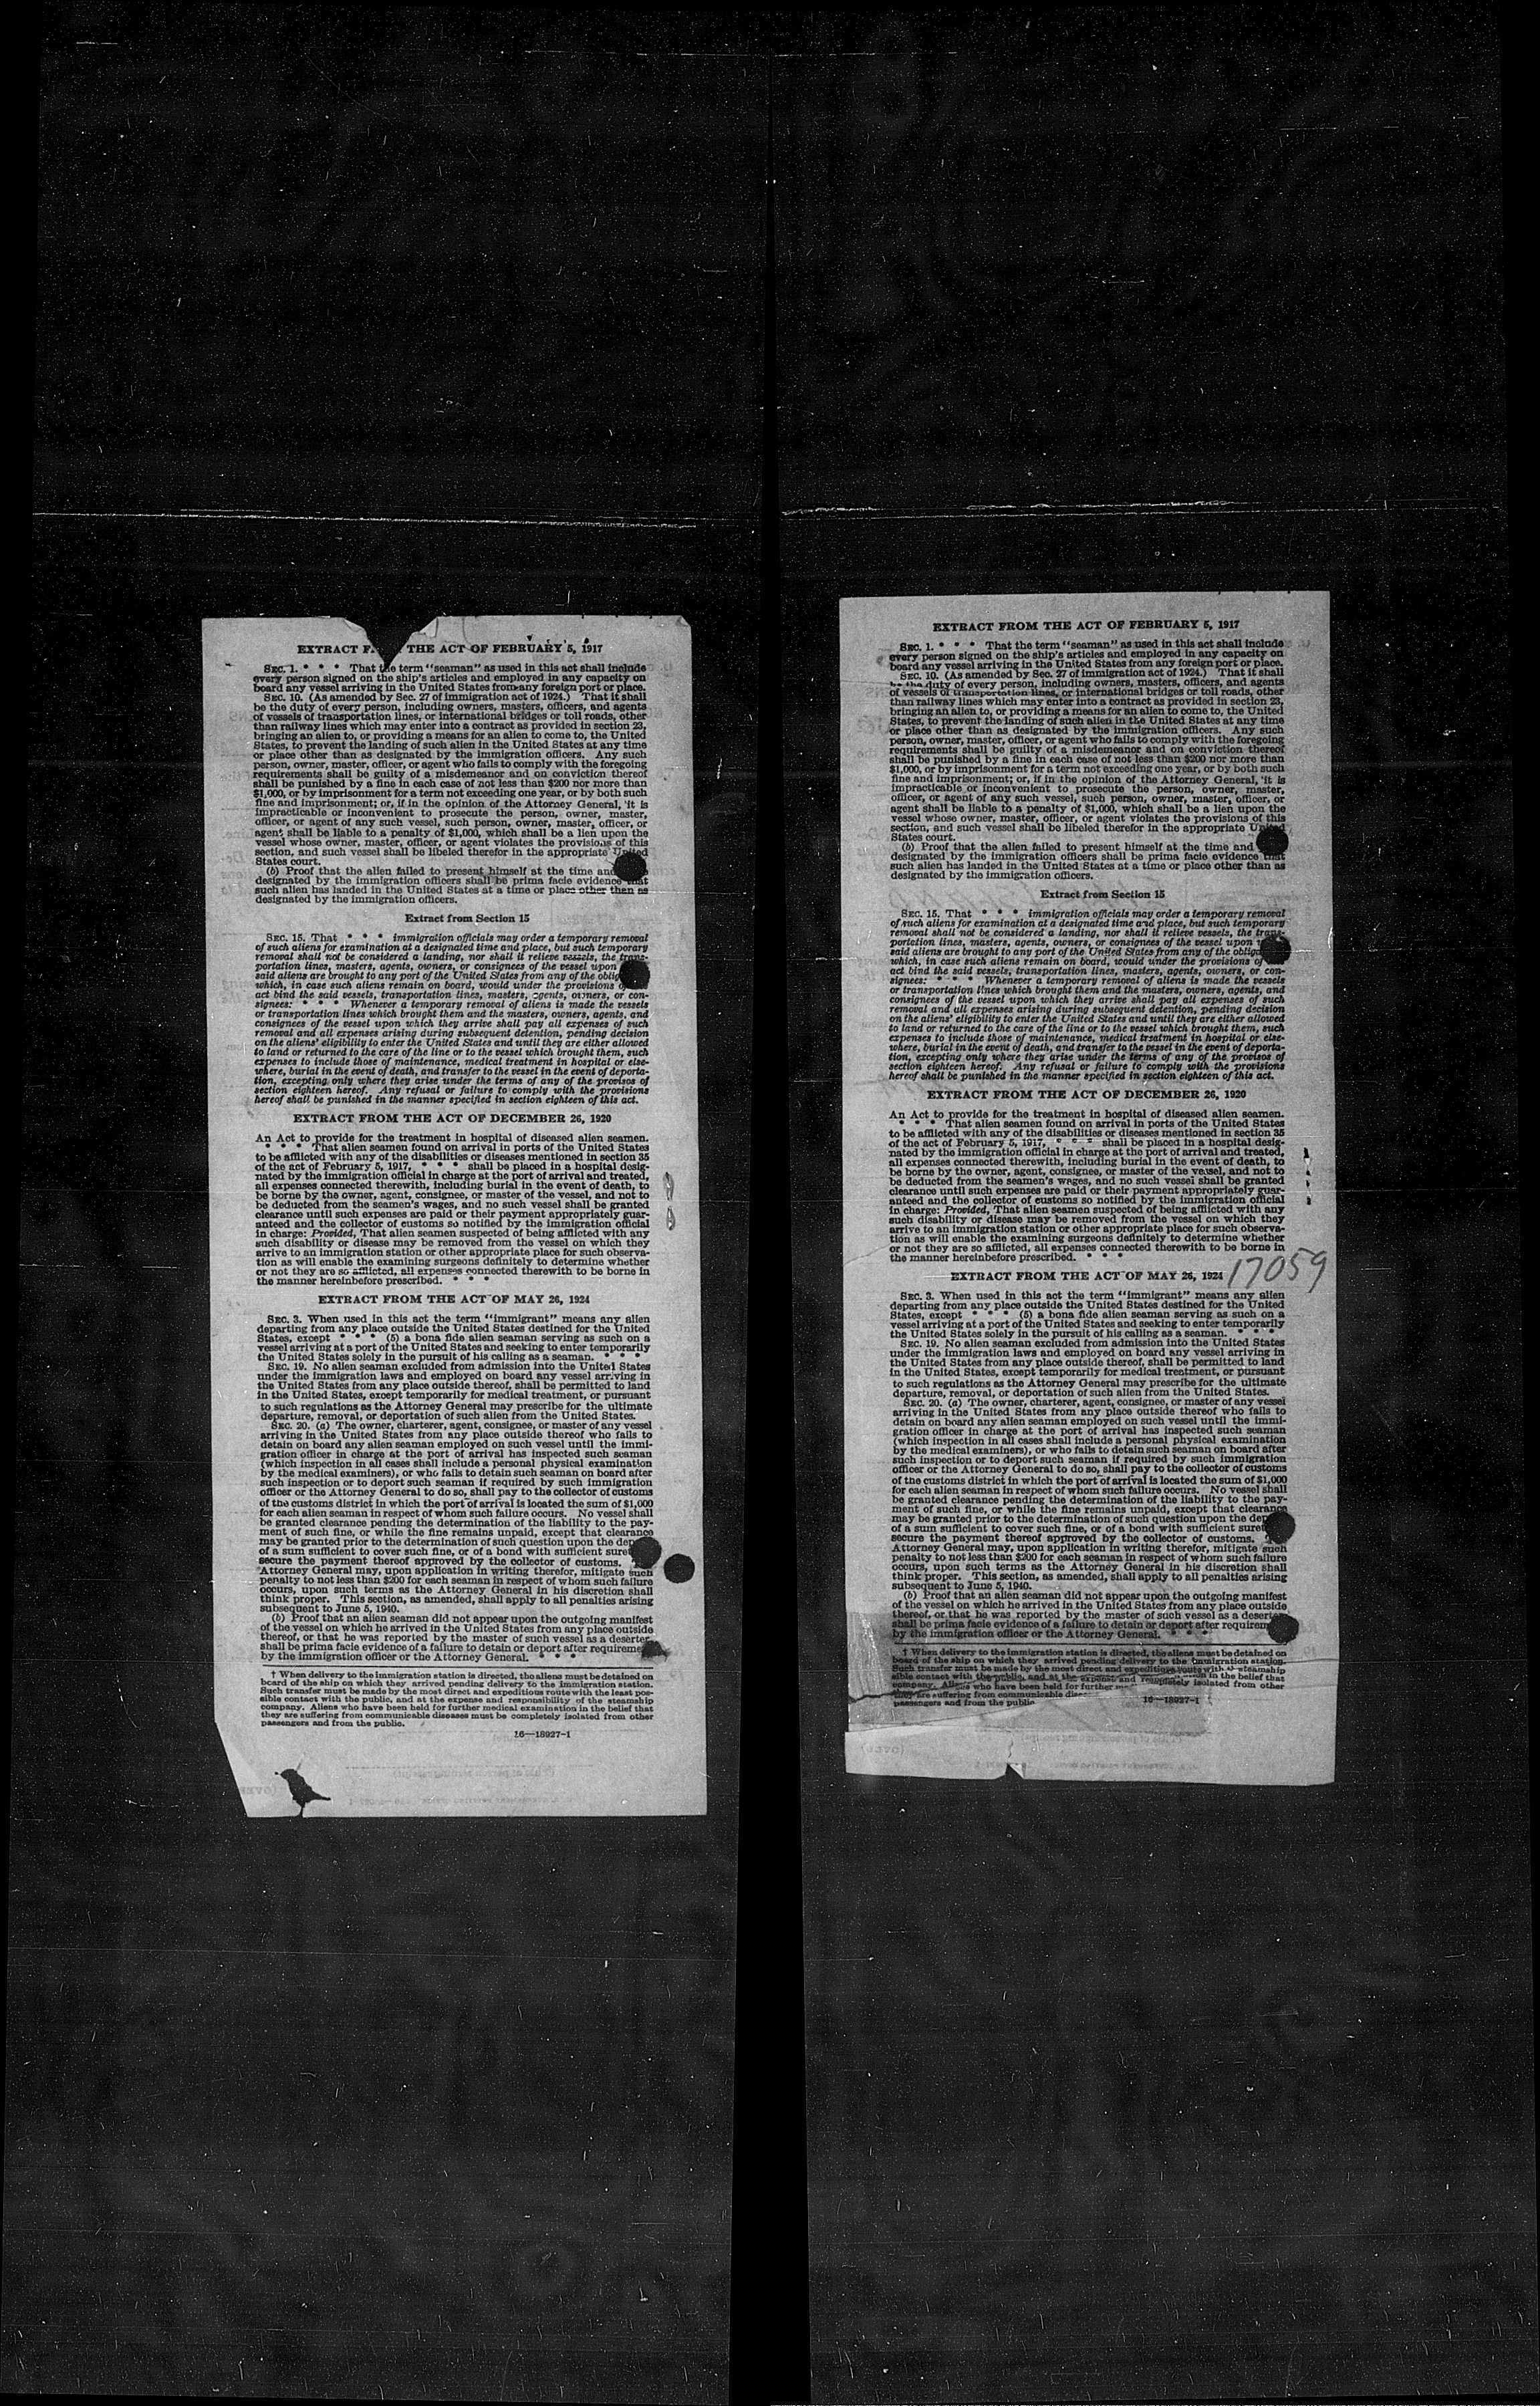 EXTRACT THE ACT OF FEBRUARY 5, 1917
SEC. 1. * * * That the term "seaman" as used in this act shall include
every person signed on the ship's articles and employed in any capacity on
board any vessel arriving in the United States from any foreign port or place.
SEC. 10. (As amended by Sec. 27 of immigration act of 1924.) That it shall
be the duty of every person, including owners, masters, officers, and agents
of vessels of transportation lines, or international bridges or toll roads, other
than railway lines which may enter into a contract as provided in section 23,
bringing an alien to, or providing a means for an alien to come to, the United
States, to prevent the landing of such alien in the United States at any time
or place other than as designated by the immigration officers. Any such
person, owner, master, officer, or agent who fails to comply with the foregoing
requirements shall be guilty of a misdemeanor and on conviction thereof
shall be punished by a fine in each case of not less than $200 nor more than
$1,000, or by imprisonment for a term not exceeding one year, or by both such
fine and imprisonment; or, if in the opinion of the Attorney General, it is
impracticable or inconvenient to prosecute the person, owner, master,
officer, or agent of any such vessel, such person, owner, master, officer, or
agent shall be liable to a penalty of $1,000, which shall be a lien upon the
vessel whose owner, master, officer, or agent violates the provisions of this
section, and such vessel shall be libeled therefor in the appropriate United
States court.
(b) Proof that the alien failed to present himself at the time and
designated by the immigration officers shall be prima facie evidence that
such alien has landed in the United States at a time or place other than as
designated by the immigration officers.
Extract from Section 15
SEC. 15. That * * * immigration officials may order a temporary removal
of such aliens for examination at a designated time and place, but such temporary
removal shall not be considered a landing, nor shall it relieve vessels, the trans-
portation lines, masters, agents, owners, or consignees of the vessel upon
said aliens are brought to any port of the United States from any of the
which, in case such aliens remain on board, would under the provisions
act bind the said vessels, transportation lines, masters, agents, owners, or con-
signees: * * * Whenever a temporary removal of aliens is made the vessels
or transportation lines which brought them and the masters, owners, agents, and
consignees of the vessel upon which they arrive shall pay all expenses of such
removal and all expenses arising during subsequent detention, pending decision
on the aliens' eligibility to enter the United States and until they are either allowed
to land or returned to the care of the line or to the vessel which brought them, such
expenses to include those of maintenance, medical treatment in hospital or else-
where, burial in the event of death, and transfer to the vessel in the event of deporta-
tion, excepting only where they arise under the terms of any of the provisos of
section eighteen hereof. Any refusal or failure to comply with the provisions
hereof shall be punished in the manner specified in section eighteen of this act.
EXTRACT FROM THE ACT OF DECEMBER 26, 1920
An Act to provide for the treatment in hospital of diseased alien seamen.
* * * That alien seamen found on arrival in ports of the United States
to be afflicted with any of the disabilities or diseases mentioned in section 35
of the act of February 5, 1917, * * * shall be placed in a hospital desig-
nated by the immigration official in charge at the port of arrival and treated,
all expenses connected therewith, including burial in the event of death, to
be borne by the owner, agent, consignee, or master of the vessel, and not to
be deducted from the seamen's wages, and no such vessel shall be granted
clearance until such expenses are paid or their payment appropriately guar-
anteed and the collector of customs so notified by the immigration official
in charge: Provided, That alien seamen suspected of being afflicted with any
such disability or disease may be removed from the vessel on which they
arrive to an immigration station or other appropriate place for such observa-
tion as will enable the examining surgeons definitely to determine whether
or not they are so afflicted, all expenses connected therewith to be borne in
the manner hereinbefore prescribed. * * *
EXTRACT FROM THE ACT OF MAY 26, 1924
SEC. 3. When used in this act the term "immigrant" means any alien
departing from any place outside the United States destined for the United
States, except * * * (5) a bona fide alien seaman serving as such on a
vessel arriving at a port of the United States and seeking to enter temporarily
the United States solely in the pursuit of his calling as a seaman. * * *
SEC. 19. No alien seaman excluded from admission into the United States
under the immigration laws and employed on board any vessel arriving in
the United States from any place outside thereof, shall be permitted to land
in the United States, except temporarily for medical treatment, or pursuant
to such regulations as the Attorney General may prescribe for the ultimate
departure, removal, or deportation of such alien from the United States.
SEC. 20. (a) The owner, charterer, agent, consignee, or master of any vessel
arriving in the United States from any place outside thereof who fails to
detain on board any alien seaman employed on such vessel until the immi-
gration officer in charge at the port of arrival has inspected such seaman
(which inspection in all cases shall include a personal physical examination
by the medical examiners), or who fails to detain such seaman on board after
such inspection or to deport such seaman if required by such immigration
officer or the Attorney General to do so, shall pay to the collector of customs
of the customs district in which the port of arrival is located the sum of $1,000
for each alien seaman in respect of whom such failure occurs. No vessel shall
be granted clearance pending the determination of the liability to the pay-
ment of such fine, or while the fine remains unpaid, except that clearance
may be granted prior to the determination of such question upon the
of a sum sufficient to cover such fine, or of a bond with sufficient
secure the payment thereof approved by the collector of customs.
Attorney General may, upon application in writing therefor, mitigate such
penalty to not less than $200 for each seaman in respect of whom such failure
occurs, upon such terms as the Attorney General in his discretion shall
think proper. This section, as amended, shall apply to all penalties arising
subsequent to June 5, 1940.
(b) Proof that an alien seaman did not appear upon the outgoing manifest
of the vessel on which he arrived in the United States from any place outside
thereof, or that he was reported by the master of such vessel as a deserter
shall be prima facie evidence of a failure to detain or deport after
by the immigration officer or the Attorney General. * * *
† When delivery to the immigration station is directed, the aliens must be detained on
board of the ship on which they arrived pending delivery to the immigration station.
Such transfer must be made by the most direct and expeditious route with the least pos-
sible contact with the public, and at the expense and responsibility of the steamship
company. Aliens who have been held for further medical examination in the belief that
they are suffering from communicable diseases must be completely isolated from other
passengers and from the public.
16—18927-1
EXTRACT FROM THE ACT OF FEBRUARY 5, 1917
SEC. 1. * * * That the term "seaman" as used in this act shall include
every person signed on the ship's articles and employed in any capacity on
board any vessel arriving in the United States from any foreign port or place.
SEC. 10. (As amended by Sec. 27 of immigration act of 1924.) That it shall
be the duty of every person, including owners, masters, officers, and agents
of vessels of transportation lines, or international bridges or toll roads, other
than railway lines which may enter into a contract as provided in section 23,
bringing an alien to, or providing a means for an alien to come to, the United
States, to prevent the landing of such alien in the United States at any time
or place other than as designated by the immigration officers. Any such
person, owner, master, officer, or agent who fails to comply with the foregoing
requirements shall be guilty of a misdemeanor and on conviction thereof
shall be punished by a fine in each case of not less than $200 nor more than
$1,000, or by imprisonment for a term not exceeding one year, or by both such
fine and imprisonment; or, if in the opinion of the Attorney General, it is
impracticable or inconvenient to prosecute the person, owner, master,
officer, or agent of any such vessel, such person, owner, master, officer, or
agent shall be liable to a penalty of $1,000, which shall be a lien upon the
vessel whose owner, master, officer, or agent violates the provisions of this
section, and such vessel shall be libeled therefor in the appropriate United
States court.
(b) Proof that the alien failed to present himself at the time and
designated by the immigration officers shall be prima facie evidence that
such alien has landed in the United States at a time or place other than as
designated by the immigration officers.
Extract from Section 15
SEC. 15. That * * * immigration officials may order a temporary removal
of such aliens for examination at a designated time and place, but such temporary
removal shall not be considered a landing, nor shall it relieve vessels, the trans-
portation lines, masters, agents, owners, or consignees of the vessel upon
said aliens are brought to any port of the United States from any of the
which, in case such aliens remain on board, would under the provisions of
act bind the said vessels, transportation lines, masters, agents, owners, or con-
signees: * * * Whenever a temporary removal of aliens is made the vessels
or transportation lines which brought them and the masters, owners, agents, and
consignees of the vessel upon which they arrive shall pay all expenses of such
removal and all expenses arising during subsequent detention, pending decision
on the aliens' eligibility to enter the United States and until they are either allowed
to land or returned to the care of the line or to the vessel which brought them, such
expenses to include those of maintenance, medical treatment in hospital or else-
where, burial in the event of death, and transfer to the vessel in the event of deporta-
tion, excepting only where they arise under the terms of any of the provisos of
section eighteen hereof. Any refusal or failure to comply with the provisions
hereof shall be punished in the manner specified in section eighteen of this act.
EXTRACT FROM THE ACT OF DECEMBER 26, 1920
An Act to provide for the treatment in hospital of diseased alien seamen.
* * * That alien seamen found on arrival in ports of the United States
to be afflicted with any of the disabilities or diseases mentioned in section 35
of the act of February 5, 1917, * * * shall be placed in a hospital desig-
nated by the immigration official in charge at the port of arrival and treated,
all expenses connected therewith, including burial in the event of death, to
be borne by the owner, agent, consignee, or master of the vessel, and not to
be deducted from the seamen's wages, and no such vessel shall be granted
clearance until such expenses are paid or their payment appropriately guar-
anteed and the collector of customs so notified by the immigration official
in charge: Provided, That alien seamen suspected of being afflicted with any
such disability or disease may be removed from the vessel on which they
arrive to an immigration station or other appropriate place for such observa-
tion as will enable the examining surgeons definitely to determine whether
or not they are so afflicted, all expenses connected therewith to be borne in
the manner hereinbefore prescribed. * * *
17059
EXTRACT FROM THE ACT OF MAY 26, 1924
SEC. 3. When used in this act the term "immigrant" means any alien
departing from any place outside the United States destined for the United
States, except * * * (5) a bona fide alien seaman serving as such on a
vessel arriving at a port of the United States and seeking to enter temporarily
the United States solely in the pursuit of his calling as a seaman. * * *
SEC. 19. No alien seaman excluded from admission into the United States
under the immigration laws and employed on board any vessel arriving in
the United States from any place outside thereof, shall be permitted to land
in the United States, except temporarily for medical treatment, or pursuant
to such regulations as the Attorney General may prescribe for the ultimate
departure, removal, or deportation of such alien from the United States.
SEC. 20. (a) The owner, charterer, agent, consignee, or master of any vessel
arriving in the United States from any place outside thereof who fails to
detain on board any alien seaman employed on such vessel until the immi-
gration officer in charge at the port of arrival has inspected such seaman
(which inspection in all cases shall include a personal physical examination
by the medical examiners), or who fails to detain such seaman on board after
such inspection or to deport such seaman if required by such immigration
officer or the Attorney General to do so, shall pay to the collector of customs
of the customs district in which the port of arrival is located the sum of $1,000
for each alien seaman in respect of whom such failure occurs. No vessel shall
be granted clearance pending the determination of the liability to the pay-
ment of such fine, or while the fine remains unpaid, except that clearance
may be granted prior to the determination of such question upon the
of a sum sufficient to cover such fine, or of a bond with sufficient
secure the payment thereof approved by the collector of customs.
Attorney General may, upon application in writing therefor, mitigate such
penalty to not less than $200 for each seaman in respect of whom such failure
occurs, upon such terms as the Attorney General in his discretion shall
think proper. This section, as amended, shall apply to all penalties arising
subsequent to June 5, 1940.
(b) Proof that an alien seaman did not appear upon the outgoing manifest
of the vessel on which he arrived in the United States from any place outside
thereof, or that he was reported by the master of such vessel as a
shall be prima facie evidence of a failure to detain or deport after
by the immigration officer or the Attorney General. * * *
† When delivery to the immigration station is directed, the aliens must be detained on
board of the ship on which they arrived pending delivery to the immigration station.
Such transfer must be made by the most direct and expeditious route with steamship
sible contact with the public, and at the expense and in the belief that
company. Aliens who have been held for further completely isolated from other
they are suffering from communicable
passengers and from the public
16—18927-1